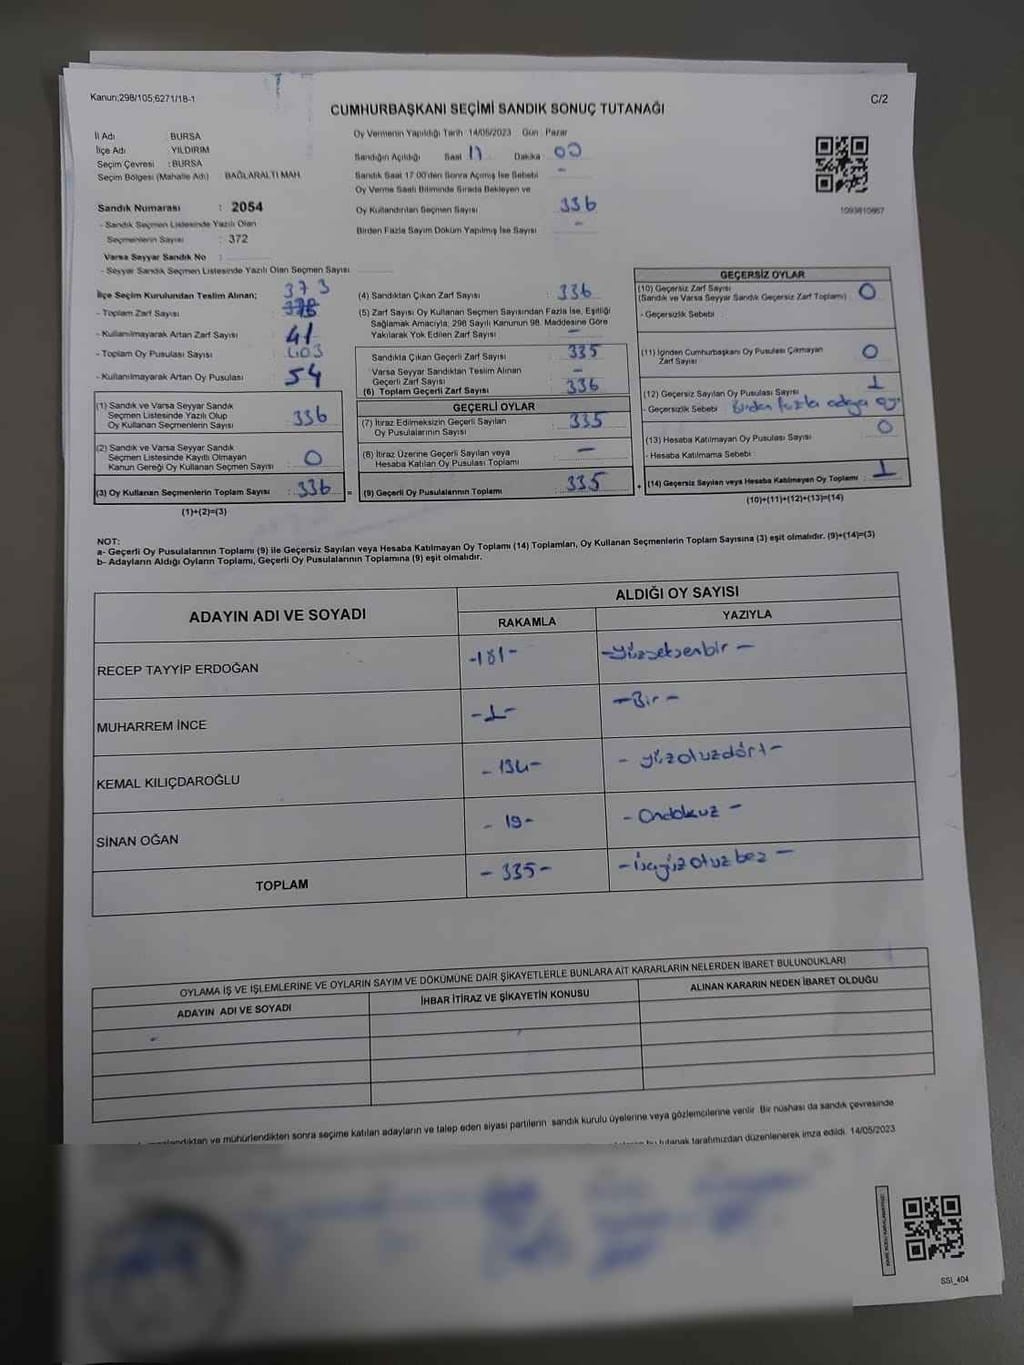 Kanun;298/105;6271/18-1
C/2
CUMHURBAŞKANI SEÇİMİ SANDIK SONUÇ TUTANAĞI
İl Adı : BURSA
İlçe Adı : YILDIRIM
Seçim Çevresi : BURSA
Seçim Bölgesi (Mahalle Adı) BAĞLARALTI MAH
Sandık Numarası : 2054
- Sandık Seçmen Listesinde Yazılı Olan
Seçmenlerin Sayısı : 372
Varsa Seyyar Sandık No :
- Seyyar Sandık Seçmen Listesinde Yazılı Olan Seçmen Sayısı
Oy Vermenin Yapıldığı Tarih 14/05/2023 Gün : Pazar
Sandığın Açıldığı Saat 17 Dakika : 00
Sandık Saat 17 00'den Sonra Açımış İse Sebebi -
Oy Verme Saati Bitiminde Sırada Bekleyen ve
Oy Kullandırılan Seçmen Sayısı 336
Birden Fazla Sayım Döküm Yapılmış İse Sayısı -
İlçe Seçim Kurulundan Teslim Alınan; 373
- Toplam Zarf Sayısı
- Kullanılmayarak Artan Zarf Sayısı 41
- Toplam Oy Pusulası Sayısı 403
- Kullanılmayarak Artan Oy Pusulası 54
(1) Sandık ve Varsa Seyyar Sandık
Seçmen Listesinde Yazılı Olup
Oy Kullanan Seçmenlerin Sayısı 336
(2) Sandık ve Varsa Seyyar Sandık
Seçmen Listesinde Kayıtlı Olmayan
Kanun Gereği Oy Kullanan Seçmen Sayısı 0
(3) Oy Kullanan Seçmenlerin Toplam Sayısı : 336 =
(1)+(2)=(3)
(4) Sandıktan Çıkan Zarf Sayısı : 336
(5) Zarf Sayısı Oy Kullanan Seçmen Sayısından Fazla İse, Eşitliği
Sağlamak Amacıyla, 298 Sayılı Kanunun 98. Maddesine Göre
Yakılarak Yok Edilen Zarf Sayısı -
Sandıkta Çıkan Geçerli Zarf Sayısı : 335
Varsa Seyyar Sandıktan Teslim Alınan
Geçerli Zarf Sayısı -
(6) Toplam Geçerli Zarf Sayısı 336
GEÇERLİ OYLAR
(7) İtiraz Edilmeksizin Geçerli Sayılan
Oy Pusulalarının Sayısı 335
(8) İtiraz Üzerine Geçerli Sayılan veya
Hesaba Katılan Oy Pusulası Toplamı -
(9) Geçerli Oy Pusulalarının Toplamı 335 +
GEÇERSİZ OYLAR
(10) Geçersiz Zarf Sayısı
(Sandık ve Varsa Seyyar Sandık Geçersiz Zarf Toplamı) : 0
- Geçersizlik Sebebi
(11) İçinden Cumhurbaşkanı Oy Pusulası Çıkmayan
Zarf Sayısı 0
(12) Geçersiz Sayılan Oy Pusulası Sayısı 1
- Geçersizlik Sebebi Birden fazla adaya oy
(13) Hesaba Katılmayan Oy Pusulası Sayısı 0
- Hesaba Katılmama Sebebi
(14) Geçersiz Sayılan veya Hesaba Katılmayan Oy Toplamı : 1
(10)+(11)+(12)+(13)=(14)
NOT:
a- Geçerli Oy Pusulalarının Toplamı (9) ile Geçersiz Sayılan veya Hesaba Katılmayan Oy Toplamı (14) Toplamları, Oy Kullanan Seçmenlerin Toplam Sayısına (3) eşit olmalıdır. (9)+(14)=(3)
b- Adayların Aldığı Oyların Toplamı, Geçerli Oy Pusulalarının Toplamına (9) eşit olmalıdır.
ADAYIN ADI VE SOYADI ALDIĞI OY SAYISI
RAKAMLA YAZIYLA
RECEP TAYYİP ERDOĞAN -181- -Yüzseksenbir-
MUHARREM İNCE -1- -Bir-
KEMAL KILIÇDAROĞLU -134- -yüzotuzdört-
SİNAN OĞAN -19- -Ondokuz-
TOPLAM -335- -üçyüzotuzbeş-
OYLAMA İŞ VE İŞLEMLERİNE VE OYLARIN SAYIM VE DÖKÜMÜNE DAİR ŞİKAYETLERLE BUNLARA AİT KARARLARIN NELERDEN İBARET BULUNDUKLARI
ADAYIN ADI VE SOYADI İHBAR İTİRAZ VE ŞİKAYETİN KONUSU ALINAN KARARIN NEDEN İBARET OLDUĞU
ve mühürlendikten sonra seçime katılan adayların ve talep eden siyasi partilerin sandık kurulu üyelerine veya gözlemcilerine verilir. Bir nüshası da sandık çevresinde
bu tutanak tarafımızdan düzenlenerek imza edildi. 14/05/2023
SSI_404